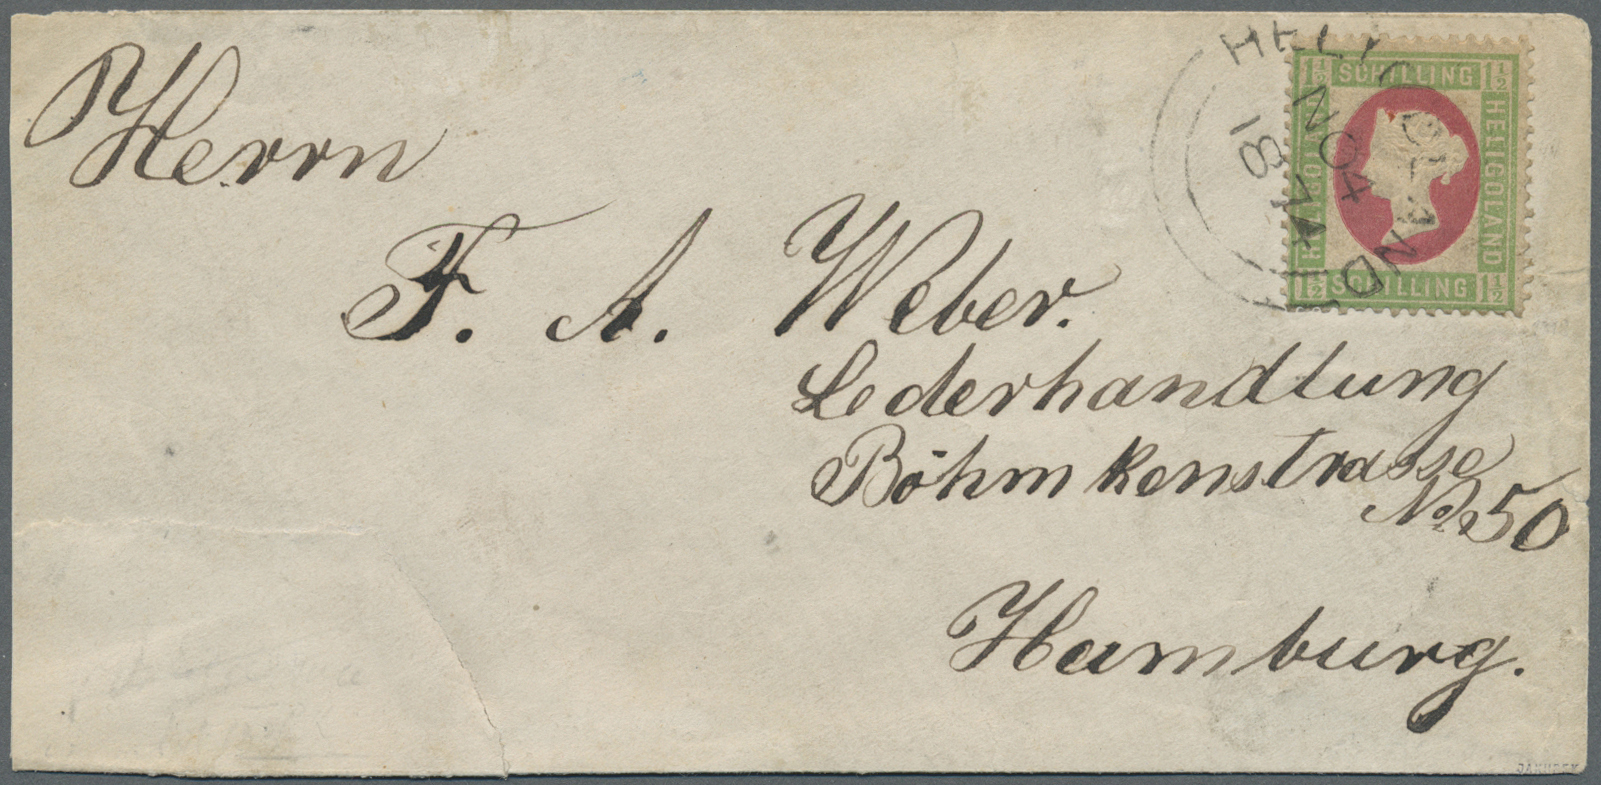 Herrn
F. A. Weber.
Lederhandlung
Böhmkenstrasse
No. 50
Hamburg.
1½ SCHILLING 1½
HELIGOLAND
HELIGOLAND
1½ SCHILLING 1½
NOV 4
JAKUBEK